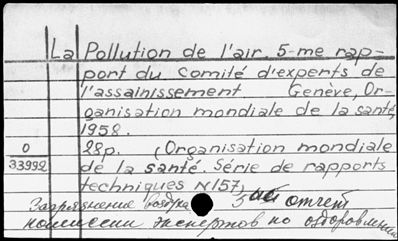 La Pollution de l'air. 5-me rap-
port du Comité d'experts de
l'assainissement Genève, Or-
ganisation mondiale de la santé,
1958.
0 28p. (Organisation mondiale
33992 de la santé. Série de rapports
techniques N157)
Загрязнение воздуха 5-ый отчет
комиссии экспертов по оздоровлению